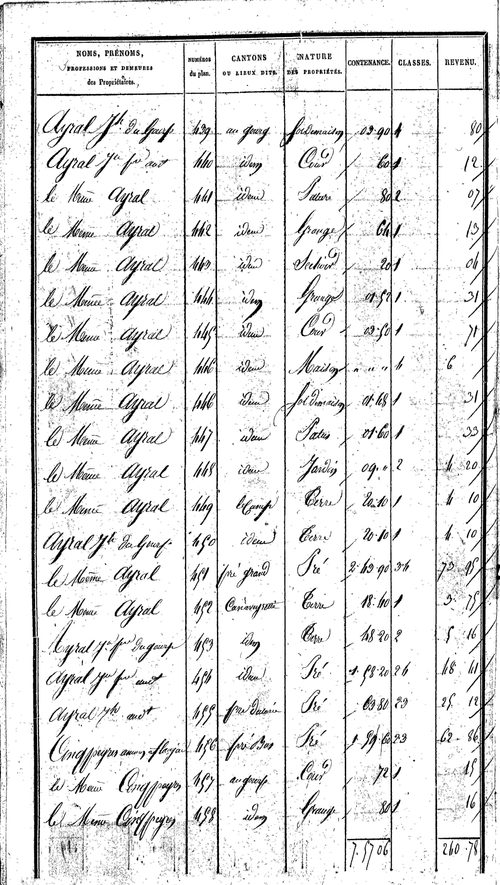 NOMS, PRÉNOMS, PROFESSIONS ET DEMEURES des Propriétaires. NUMÉROS du plan. CANTONS OU LIEUX DITS. NATURE DES PROPRIÉTÉS. CONTENANCE. CLASSES. REVENU.
Ayral Jh. du Gourp 439 au gourg Sol de maison 03 90 4 80
Ayral 440 idem Cour 60 1 12
le Même Ayral 441 idem Pature 80 2 07
le Même Ayral 442 idem Grange 64 1 13
le Même Ayral 443 idem Sechoir 20 1 04
le Même Ayral 444 idem Grange 01 52 1 31
le Même Ayral 445 idem Cour 03 50 1 71
le Même Ayral 446 idem Maison " " " 4 6
le Même Ayral 446 idem Sol de maison 01 48 1 31
le Même Ayral 447 idem Patus 01 60 1 33
le Même Ayral 448 idem Jardin 09 " 2 4 20
le Même Ayral 449 Terre 20 10 1 4 10
Ayral du Gourp 450 idem Terre 20 10 1 4 10
le Même Ayral 451 pré grand Pré 2 43 90 73 95
le Même Ayral 452 Terre 18 60 1 3 75
Ayral du gourp 453 idem Terre 48 20 2 5 16
Ayral 454 idem Pré 1 58 20 26 48 41
Ayral 455 Pré 63 80 23 25 12
Cinqpeyres 456 pré Bas Pré 1 59 60 23 62 86
le Même Cinqpeyres 457 au gourp Cour 72 1 15
le Même Cinqpeyres 458 idem Grange 80 1 16
7 57 06 260 78